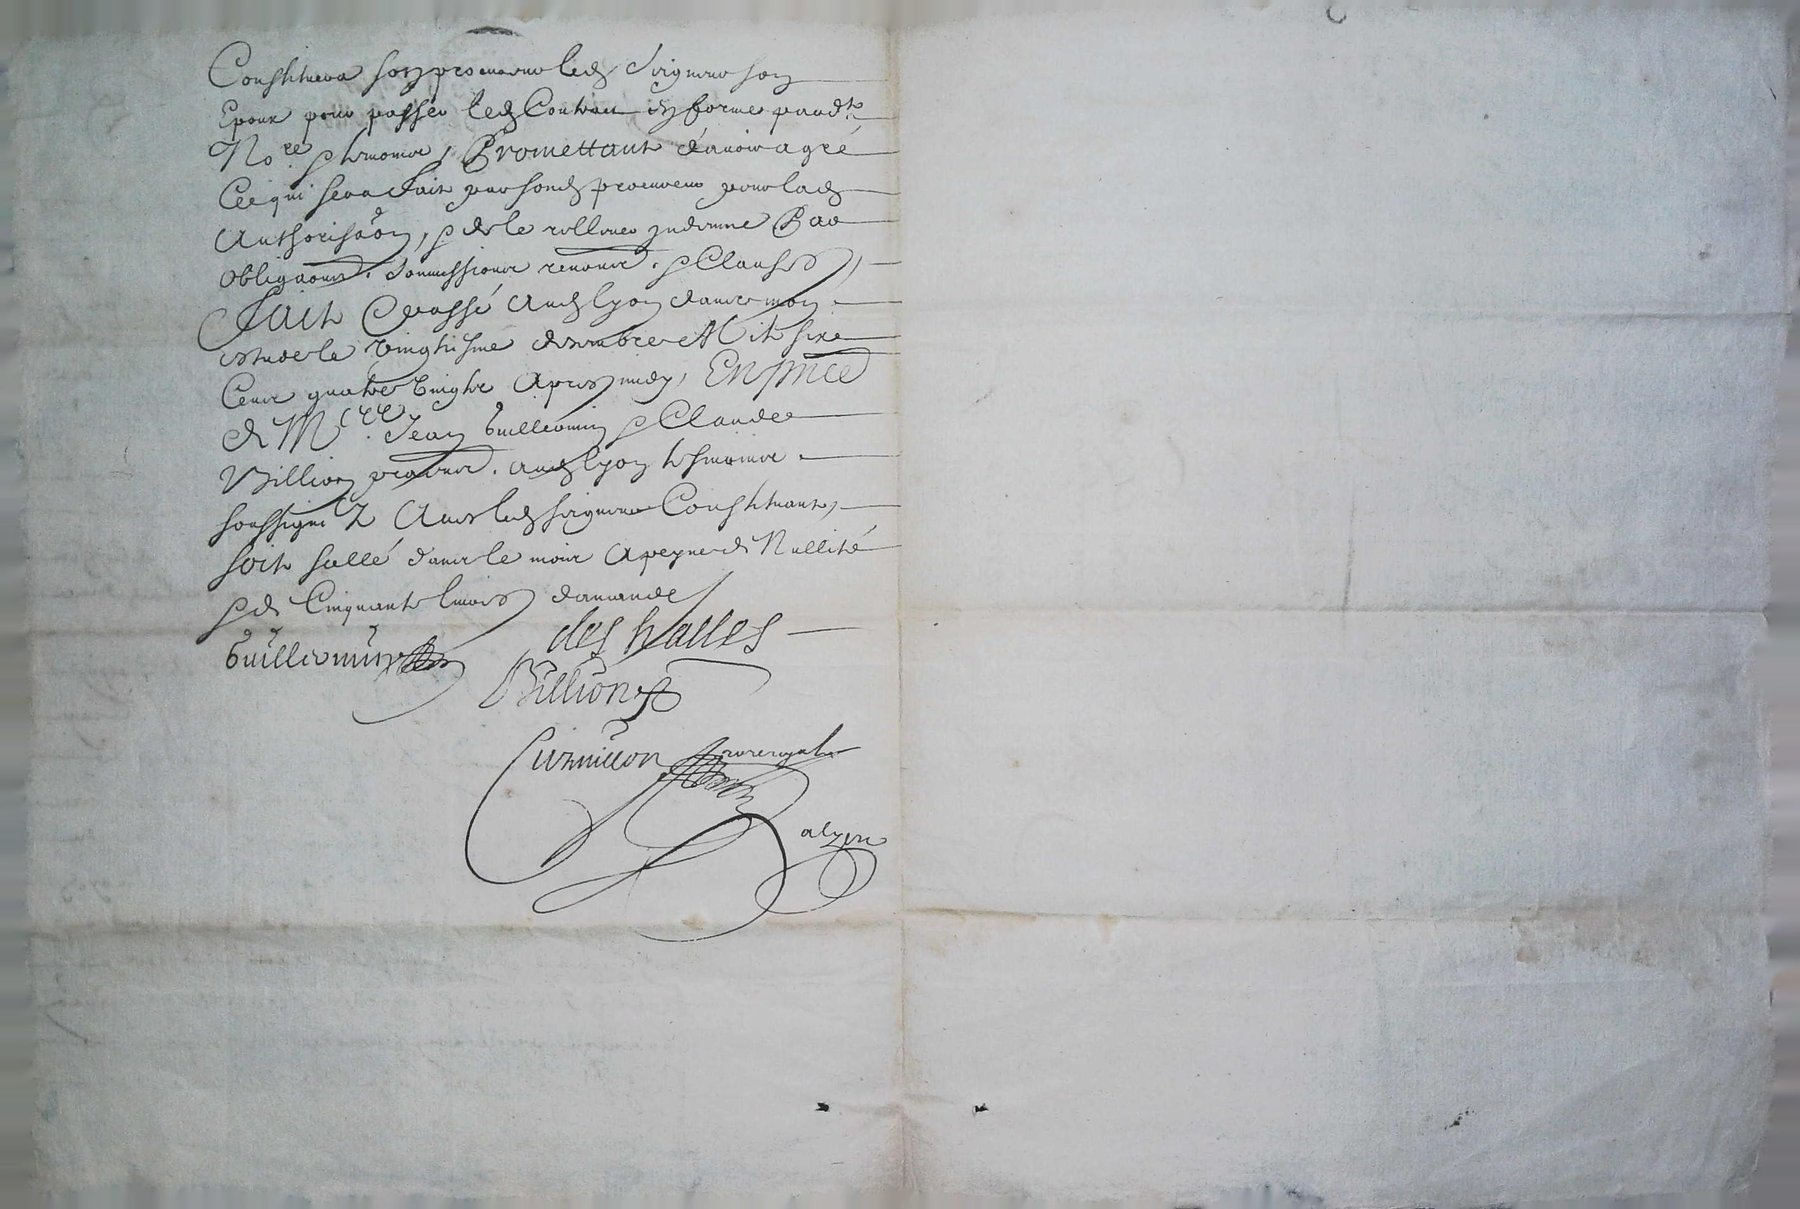 Constituera son procureur led. Seigneur son
Epoux pour passer led. Contract en forme pard.t
No.re & tesmoins, Promettant d'auoir agreé
Ce qui sera fait par sond. procureur pour lad.
Authoris̃aon, & de le relleuer indemne Par
obliga͠ons. soumissions renonc͠. & Clauses,
Fait & passé aud. Lyon dans mon
estude le vingtisme decembre Mil six
Cens quatre vingts Apres midy, En pñce
de M.ees Jean Guilleomin & Claude
Billion pra͠ns. aud. Lyon tesmoins
soussignéz Auec led. seigneur Constituant,
soit scellé dans le mois A peyne de Nullité
& de Cinquante liures d'amande
des halles
Guilleomin
Billion
Cuzmillon no.re royal
a lyon